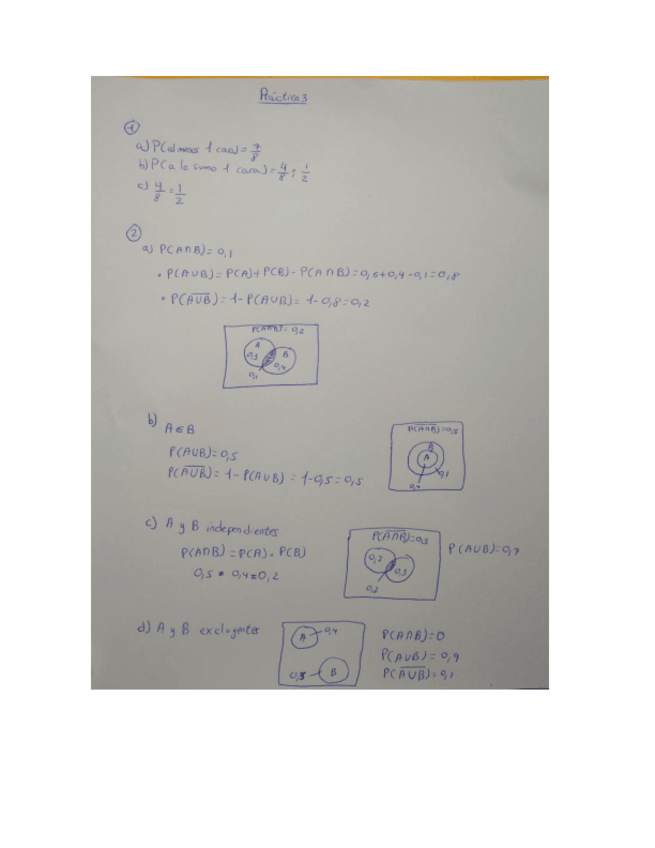 Práctica 3
①
a) P(al menos 1 cara) = 7/8
b) P(a lo sumo 1 cara) = 4/8 = 1/2
c) 4/8 = 1/2
②
a) P(A∩B) = 0,1
• P(A∪B) = P(A) + P(B) - P(A∩B) = 0,5 + 0,4 - 0,1 = 0,8
• P(A∪B)̅ = 1 - P(A∪B) = 1 - 0,8 = 0,2
= 0,2
A
B
0,3
0,4
b)
A ∈ B
P(A∪B) = 0,5
P(A∪B)̅ = 1 - P(A∪B) = 1 - 0,5 = 0,5
P(A∩B)̅ = 0,5
B
A
0,1
0,4
c) A y B independientes
P(A∩B) = P(A) · P(B)
0,5 · 0,4 = 0,2
0,2
0,3
0,2
P(A∪B) = 0,7
d) A y B excluyentes
A
0,4
0,5
B
P(A∩B) = 0
P(A∪B) = 0,9
P(A∪B)̅ = 0,1